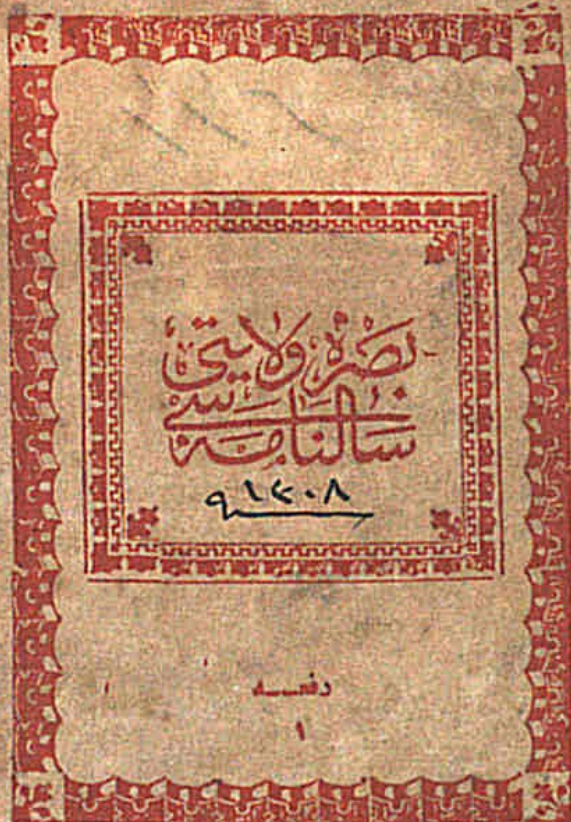 بصره ولايتى
سالنامه سى
١٣٠٨
دفعه
١